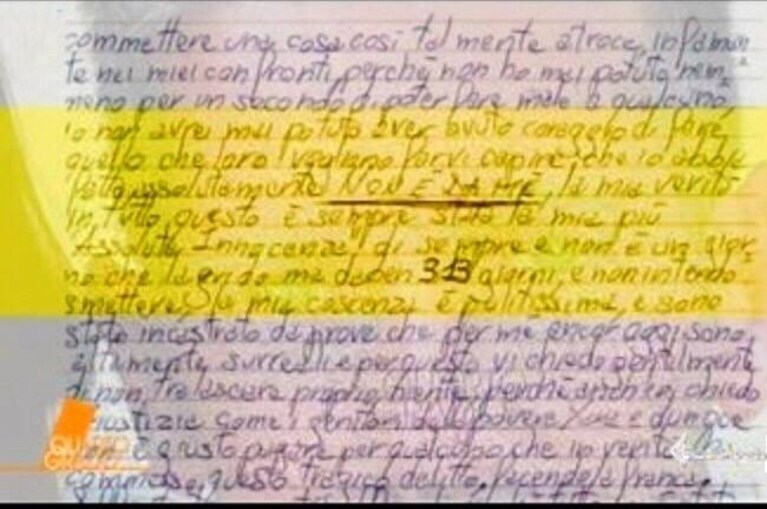 commettere una cosa così tal mente atroce, infaman
te nei miei confronti, perché non ho mai potuto nem=
meno per un secondo di poter fare male a qualcuno,
io non avrei mai potuto aver avuto coraggio di fare
quello che loro vogliono farvi capire, che io abbia
fatto, assolutamente NON È DA ME, la mia verità
in tutto questo è sempre stata la mia più
Assoluta Innocenza! di sempre e non è un gior=
no che la grido ma da ben 313 giorni, e non intendo
smettere, la mia coscenza è pulitissima, e sono
stato incastrato da prove che per me ancor oggi sono
altamente surreali e per questo vi chiedo gentilmente
di non tralasciare proprio niente, perché anch'io chiedo
giustizia come i genitori della povera Yara e dunque
non è giusto pagare per qualcuno che in verità ha
commesso questo tragico delitto, facendola franca,
QUARTO
GRADO